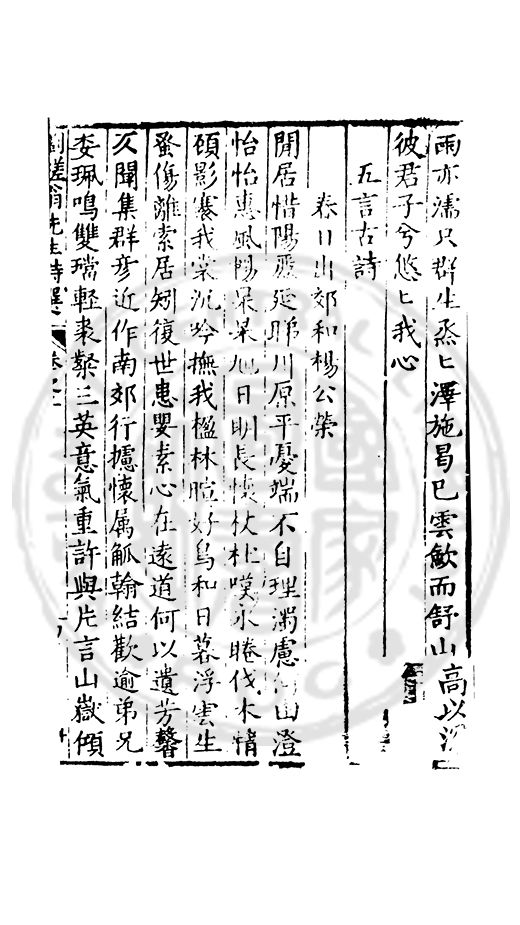 雨亦濡只群生烝匕澤施曷已雲歛而舒山高以深
彼君子兮悠匕我心
五言古詩
春日出郊和楊公榮
閒居惜陽
延睇川原平憂端不自理濁慮
山澄
怡怡惠風暢杲杲旭日明長懷杕杜嘆永睠伐木情
頋影褰我裳沉吟撫我楹林暄好鳥和日暮浮雲生
蚤傷離索居矧復世患嬰素心在遠道何以遺芳馨
久聞集群彦近作南郊行攄懷属觚翰結歡逾弟兄
委珮鳴雙璫軽裘粲三英意氣重許與片言山嶽傾
翁先生詩選